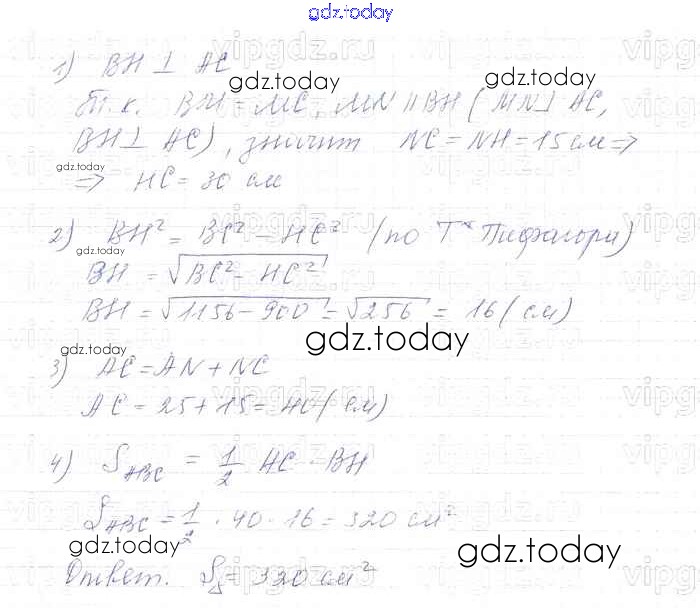 gdz.today
1) BH ⊥ AC
gdz.today
т. к. BM = MC, MN || BH (MN ⊥ AC,
BH ⊥ AC), значит NC = NH = 15 см ⇒
gdz.today
⇒ HC = 30 см
2) BH² = BC² − HC² (по Тх Пифагора)
gdz.today
BH = √BC² − HC²
BH = √1156 − 900 = √256 = 16 (см)
gdz.today
gdz.today
3) AC = AN + NC
AC = 25 + 15 = 40 (см)
4) S ABC = 1/2 AC · BH
S ABC = 1/2 · 40 · 16 = 320 см²
gdz.today
gdz.today
Ответ. S△ = 320 см²